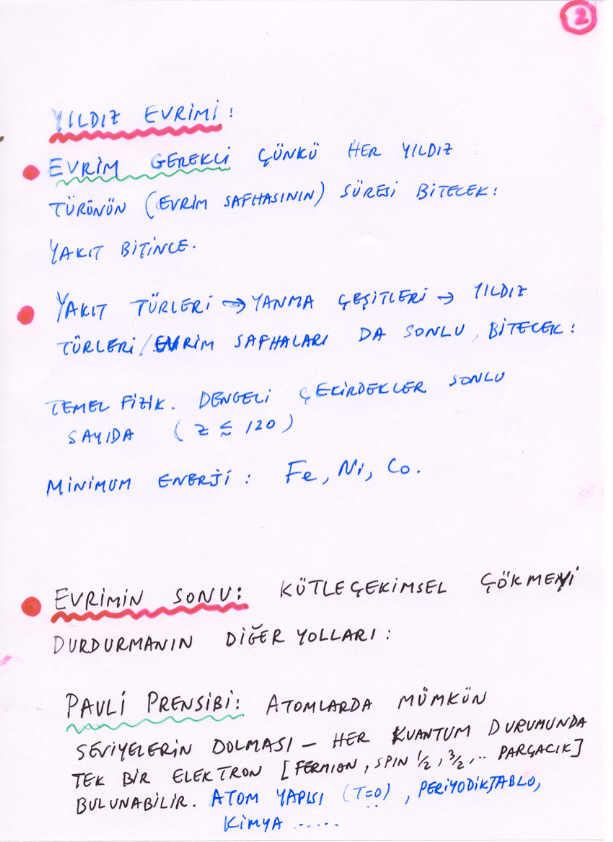 2
YILDIZ EVRİMİ:
EVRİM GEREKLİ ÇÜNKÜ HER YILDIZ
TÜRÜNÜN (EVRİM SAFHASININ) SÜRESİ BİTECEK:
YAKIT BİTİNCE.
YAKIT TÜRLERİ → YANMA ÇEŞİTLERİ → YILDIZ
TÜRLERİ/EVRİM SAFHALARI DA SONLU, BİTECEK:
TEMEL FİZİK. DENGELİ ÇEKİRDEKLER SONLU
SAYIDA (Z ≲ 120)
MİNİMUM ENERJİ: Fe, Ni, Co.
EVRİMİN SONU: KÜTLEÇEKİMSEL ÇÖKMEYİ
DURDURMANIN DİĞER YOLLARI:
PAULİ PRENSİBİ: ATOMLARDA MÜMKÜN
SEVİYELERİN DOLMASI – HER KUANTUM DURUMUNDA
TEK BİR ELEKTRON [FERMION, SPIN 1/2, 3/2, .. PARÇACIK]
BULUNABİLİR. ATOM YAPISI (T=0), PERİYODİK TABLO,
KİMYA .....